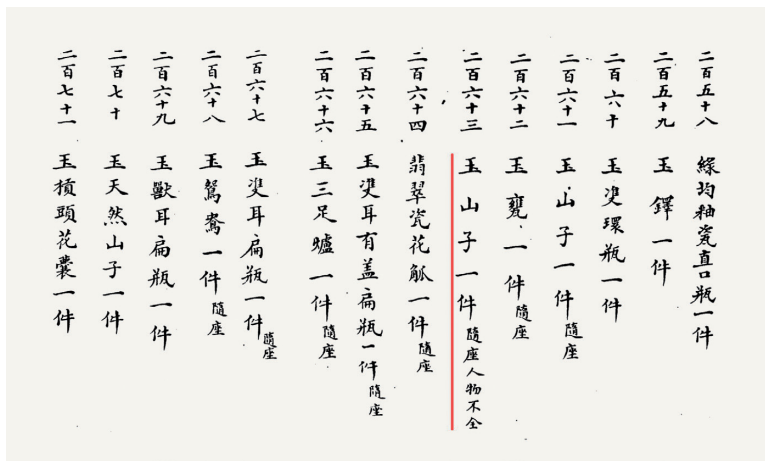 二百五十八 綠均釉瓷直口瓶一件
二百五十九 玉鐸一件
二百六十 玉雙環瓶一件
二百六十一 玉山子一件隨座
二百六十二 玉甕一件隨座
二百六十三 玉山子一件隨座人物不全
二百六十四 翡翠瓷花觚一件隨座
二百六十五 玉雙耳有盖扁瓶一件隨座
二百六十六 玉三足爐一件隨座
二百六十七 玉雙耳扁瓶一件隨座
二百六十八 玉鴛鴦一件隨座
二百六十九 玉獸耳扁瓶一件
二百七十 玉天然山子一件
二百七十一 玉摃頭花囊一件